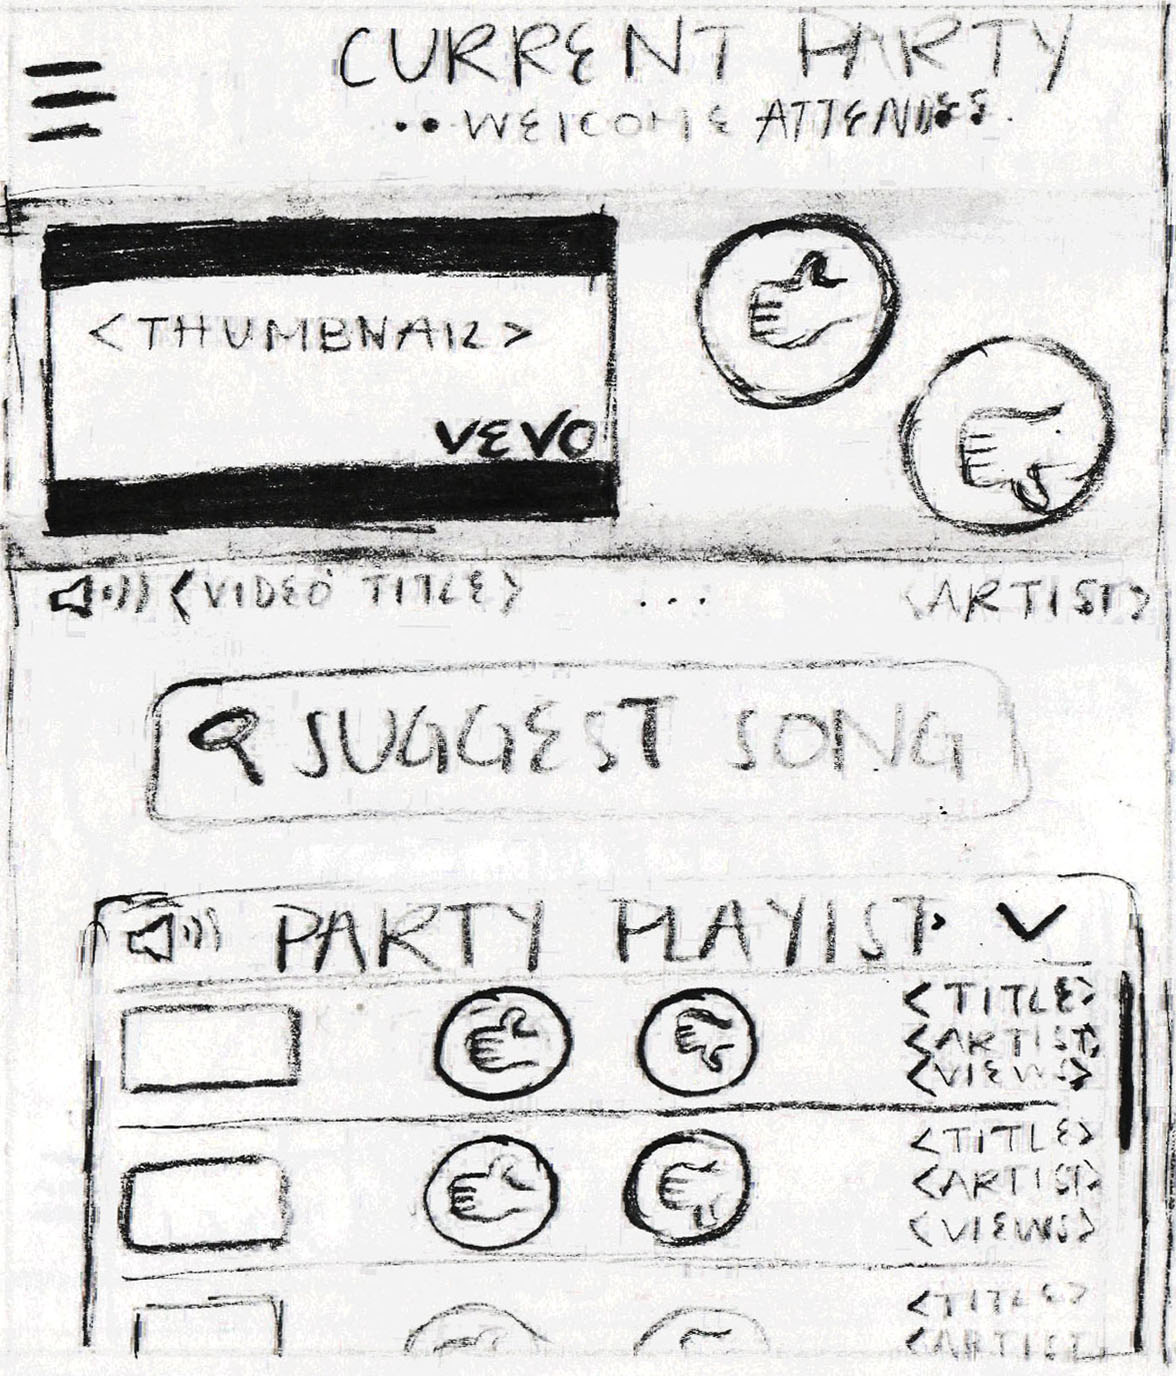 CURRENT PARTY
WELCOME ATTENDEE.
<THUMBNAIL>
VEVO
<VIDEO TITLE> ... <ARTIST>
SUGGEST SONG
PARTY PLAYIST
<TITLE>
<ARTIST>
<VIEWS>
<TITLE>
<ARTIST>
<VIEWS>
<TITLE>
<ARTIST